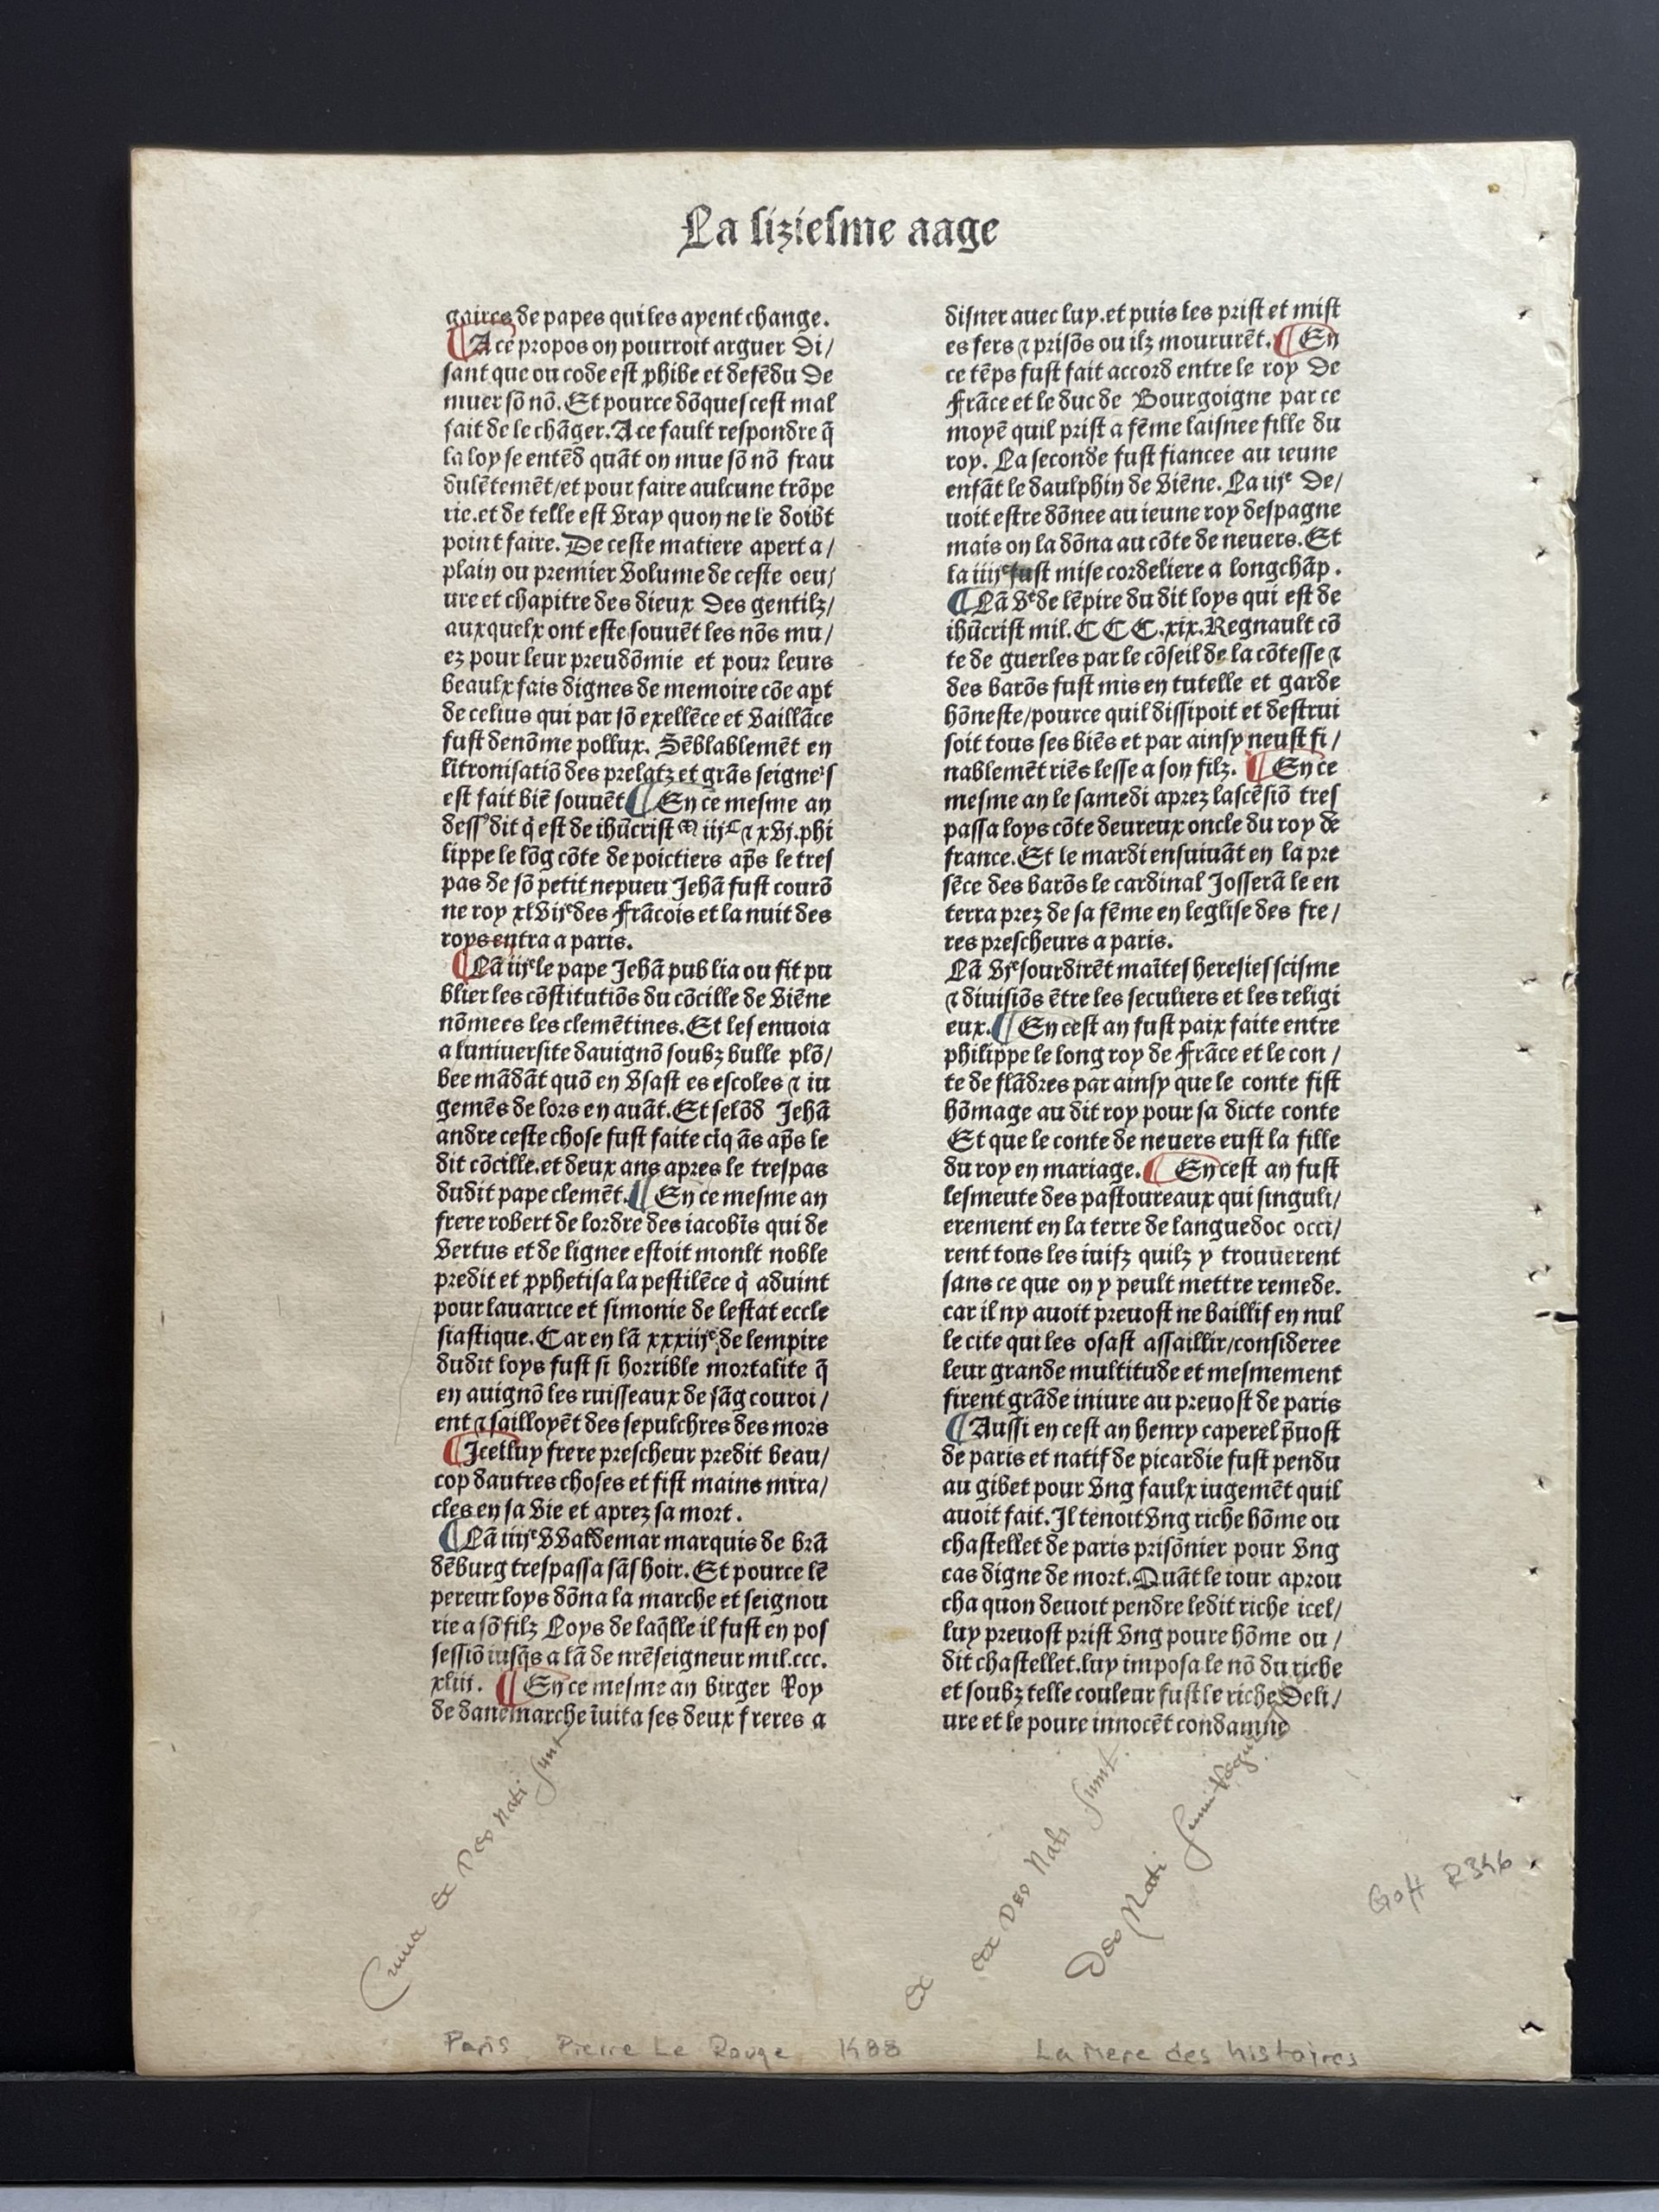 La siziesme aage
gaires de papes qui les ayent change.
¶ A ce propos on pourroit arguer di/
sant que ou code est ꝓhibe et defēdu de
muer sō nō. Et pource dōques cest mal
fait de le chāger. A ce fault respondre q̄
la loy se entēd quāt on mue sō nō frau
dulētemēt/et pour faire aulcune trōpe
rie. et de telle est vray quon ne le doibt
point faire. De ceste matiere apert a/
plain ou premier volume de ceste oeu/
ure et chapitre des dieux des gentilz/
auxquelx ont este souuēt les nōs mu/
ez pour leur preudōmie et pour leurs
beaulx fais dignes de memoire cōe apt
de celius qui par sō exellēce et vaillāce
fust denōme pollux. Sēblablemēt en
lītronisatiō des prelatz et grās seigneʳs
est fait biē souuēt ¶ En ce mesme an
dessꝰdit q̇ est de ihūcrist M iijᶜ ⁊ xvj. phi
lippe le lōg cōte de poictiers ap̄s le tres
pas de sō petit nepueu Jehā fust courō
ne roy xlvijᵉ des frācois et la nuit des
roys entra a paris.
¶ Lā iijᵉ le pape Jehā publia ou fit pu
blier les cōstitutiōs du cōcille de viēne
nōmees les clemētines. Et les enuoia
a luniuersite dauignō soubz bulle plō/
bee mādāt quō en vsast es escoles ⁊ iu
gemēs de lors en auāt. Et selōd Jehā
andre ceste chose fust faite cīq ās ap̄s le
dit cōcille. et deux ans apres le trespas
dudit pape clemēt. ¶ En ce mesme an
frere robert de lordre des iacobīs qui de
vertus et de lignee estoit monlt noble
predit et ꝓphetisa la pestilēce q̇ aduint
pour lauarice et simonie de lestat eccle
siastique. Car en lā xxxiijᵉ de lempire
dudit loys fust si horrible mortalite q̄
en auignō les ruisseaux de sāg couroi/
ent ⁊ sailloyēt des sepulchres des mors
¶ Icelluy frere prescheur predit beau/
cop dautres choses et fist mains mira/
cles en sa vie et aprez sa mort.
¶ Lā iiijᵉ VValdemar marquis de brā
dēburg trespassa sās hoir. Et pource lē
pereur loys dōna la marche et seignou
rie a sō filz Loys de laq̄lle il fust en pos
sessiō iusq̄s a lā de nrē seigneur mil.ccc.
xliii. ¶ En ce mesme an birger Roy
de danemarche īuita ses deux freres a
disner auec luy. et puis les prist et mist
es fers ⁊ prisōs ou ilz moururēt. ¶ En
ce tēps fust fait accord entre le roy de
frāce et le duc de Bourgoigne par ce
moyē quil prist a fēme laisnee fille du
roy. La seconde fust fiancee au ieune
enfāt le daulphin de viēne. La iijᵉ de/
uoit estre dōnee au ieune roy despagne
mais on la dōna au cōte de neuers. Et
la iiijᵉ fust mise cordeliere a longchāp.
¶ Lā vᵉ de lēpire du dit loys qui est de
ihūcrist mil.CCC.xix. Regnault cō
te de guerles par le cōseil de la cōtesse ⁊
des barōs fust mis en tutelle et garde
hōneste/pource quil dissipoit et destrui
soit tous ses biēs et par ainsy neust fi/
nablemēt riēs lesse a son filz. ¶ En ce
mesme an le samedi aprez lascēsiō tres
passa loys cōte deureux oncle du roy de
france. Et le mardi ensuiuāt en la pre
sēce des barōs le cardinal Josserā le en
terra prez de sa fēme en leglise des fre/
res prescheurs a paris.
Lā vjᵉ sourdirēt maītes heresies scisme
⁊ diuisiōs ētre les seculiers et les religi
eux. ¶ En cest an fust paix faite entre
philippe le long roy de frāce et le con/
te de flādres par ainsy que le conte fist
hōmage au dit roy pour sa dicte conte
Et que le conte de neuers eust la fille
du roy en mariage. ¶ En cest an fust
lesmeute des pastoureaux qui singuli/
erement en la terre de languedoc occi/
rent tous les iuifz quilz y trouuerent
sans ce que on y peult mettre remede.
car il ny auoit preuost ne baillif en nul
le cite qui les osast assaillir/consideree
leur grande multitude et mesmement
firent grāde iniure au preuost de paris
¶ Aussi en cest an henry caperel p̄uost
de paris et natif de picardie fust pendu
au gibet pour vng faulx iugemēt quil
auoit fait. Il tenoit vng riche hōme ou
chastellet de paris prisōnier pour vng
cas digne de mort. Quāt le iour aprou
cha quon deuoit pendre ledit riche icel/
luy preuost prist vng poure hōme ou/
dit chastellet. luy imposa le nō du riche
et soubz telle couleur fust le riche deli/
ure et le poure innocēt condamne
ex Deo nati sunt
ex
ex Deo Nati sunt
Deo Nati
Goff R346
Paris Pierre Le Rouge 1488
La mere des histoires